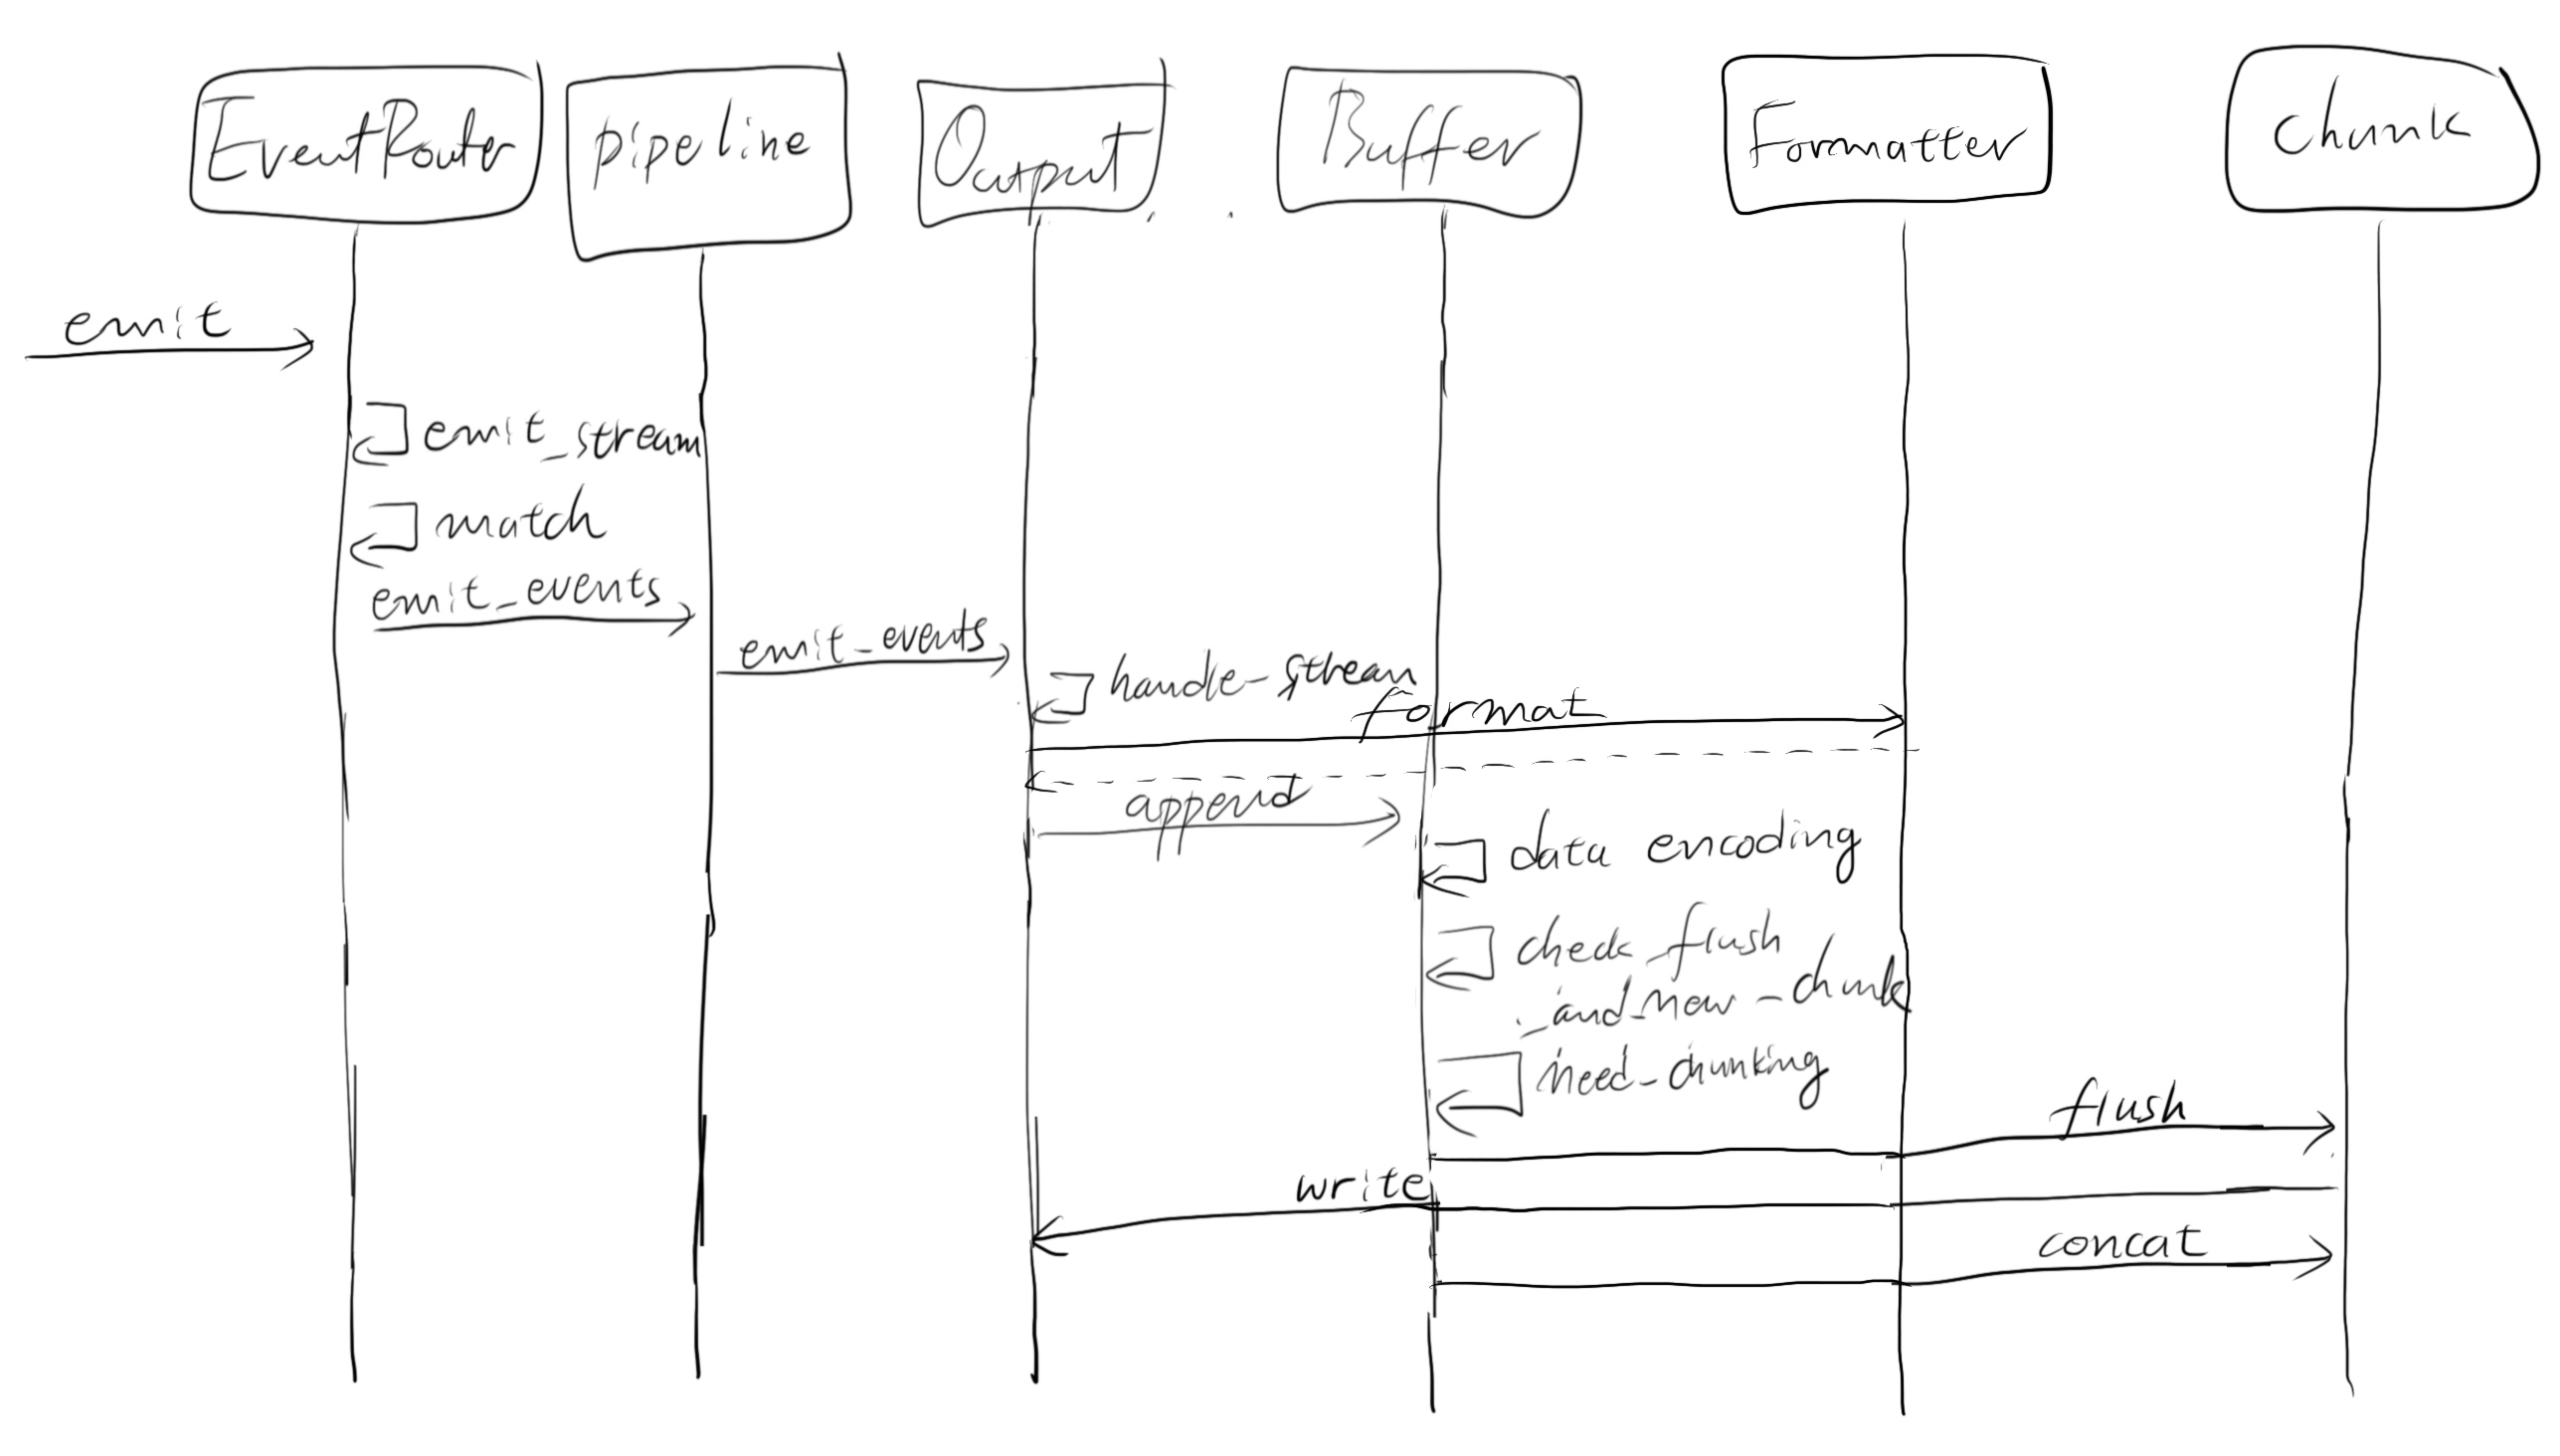 EventRouter
pipeline
Output
Buffer
Formatter
chunk
emit
emit_stream
match
emit_events
emit_events
handle_stream
format
append
data encoding
check_flush
_and_new_chunk
need_chunking
flush
write
concat